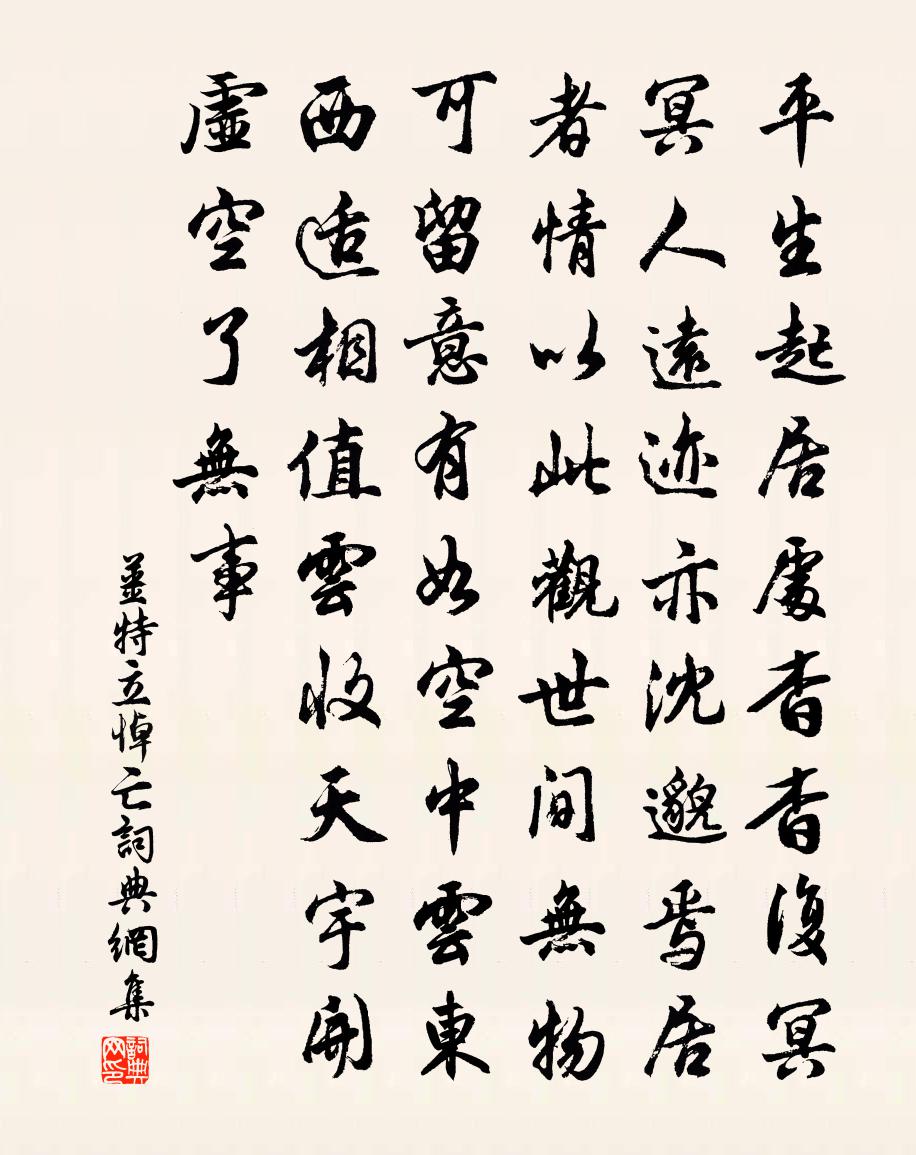 平生起居處杳杳復冥
冥人遠迹亦沈邈焉居
者情以此觀世間無物
可留意有如空中雲東
西适相值雲收天宇開
虛空了無事
薑特立悼亡詞典網集
詞典网印